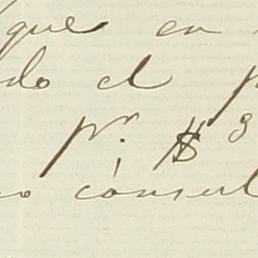 que en
do el p
pr. $ 3
co consul